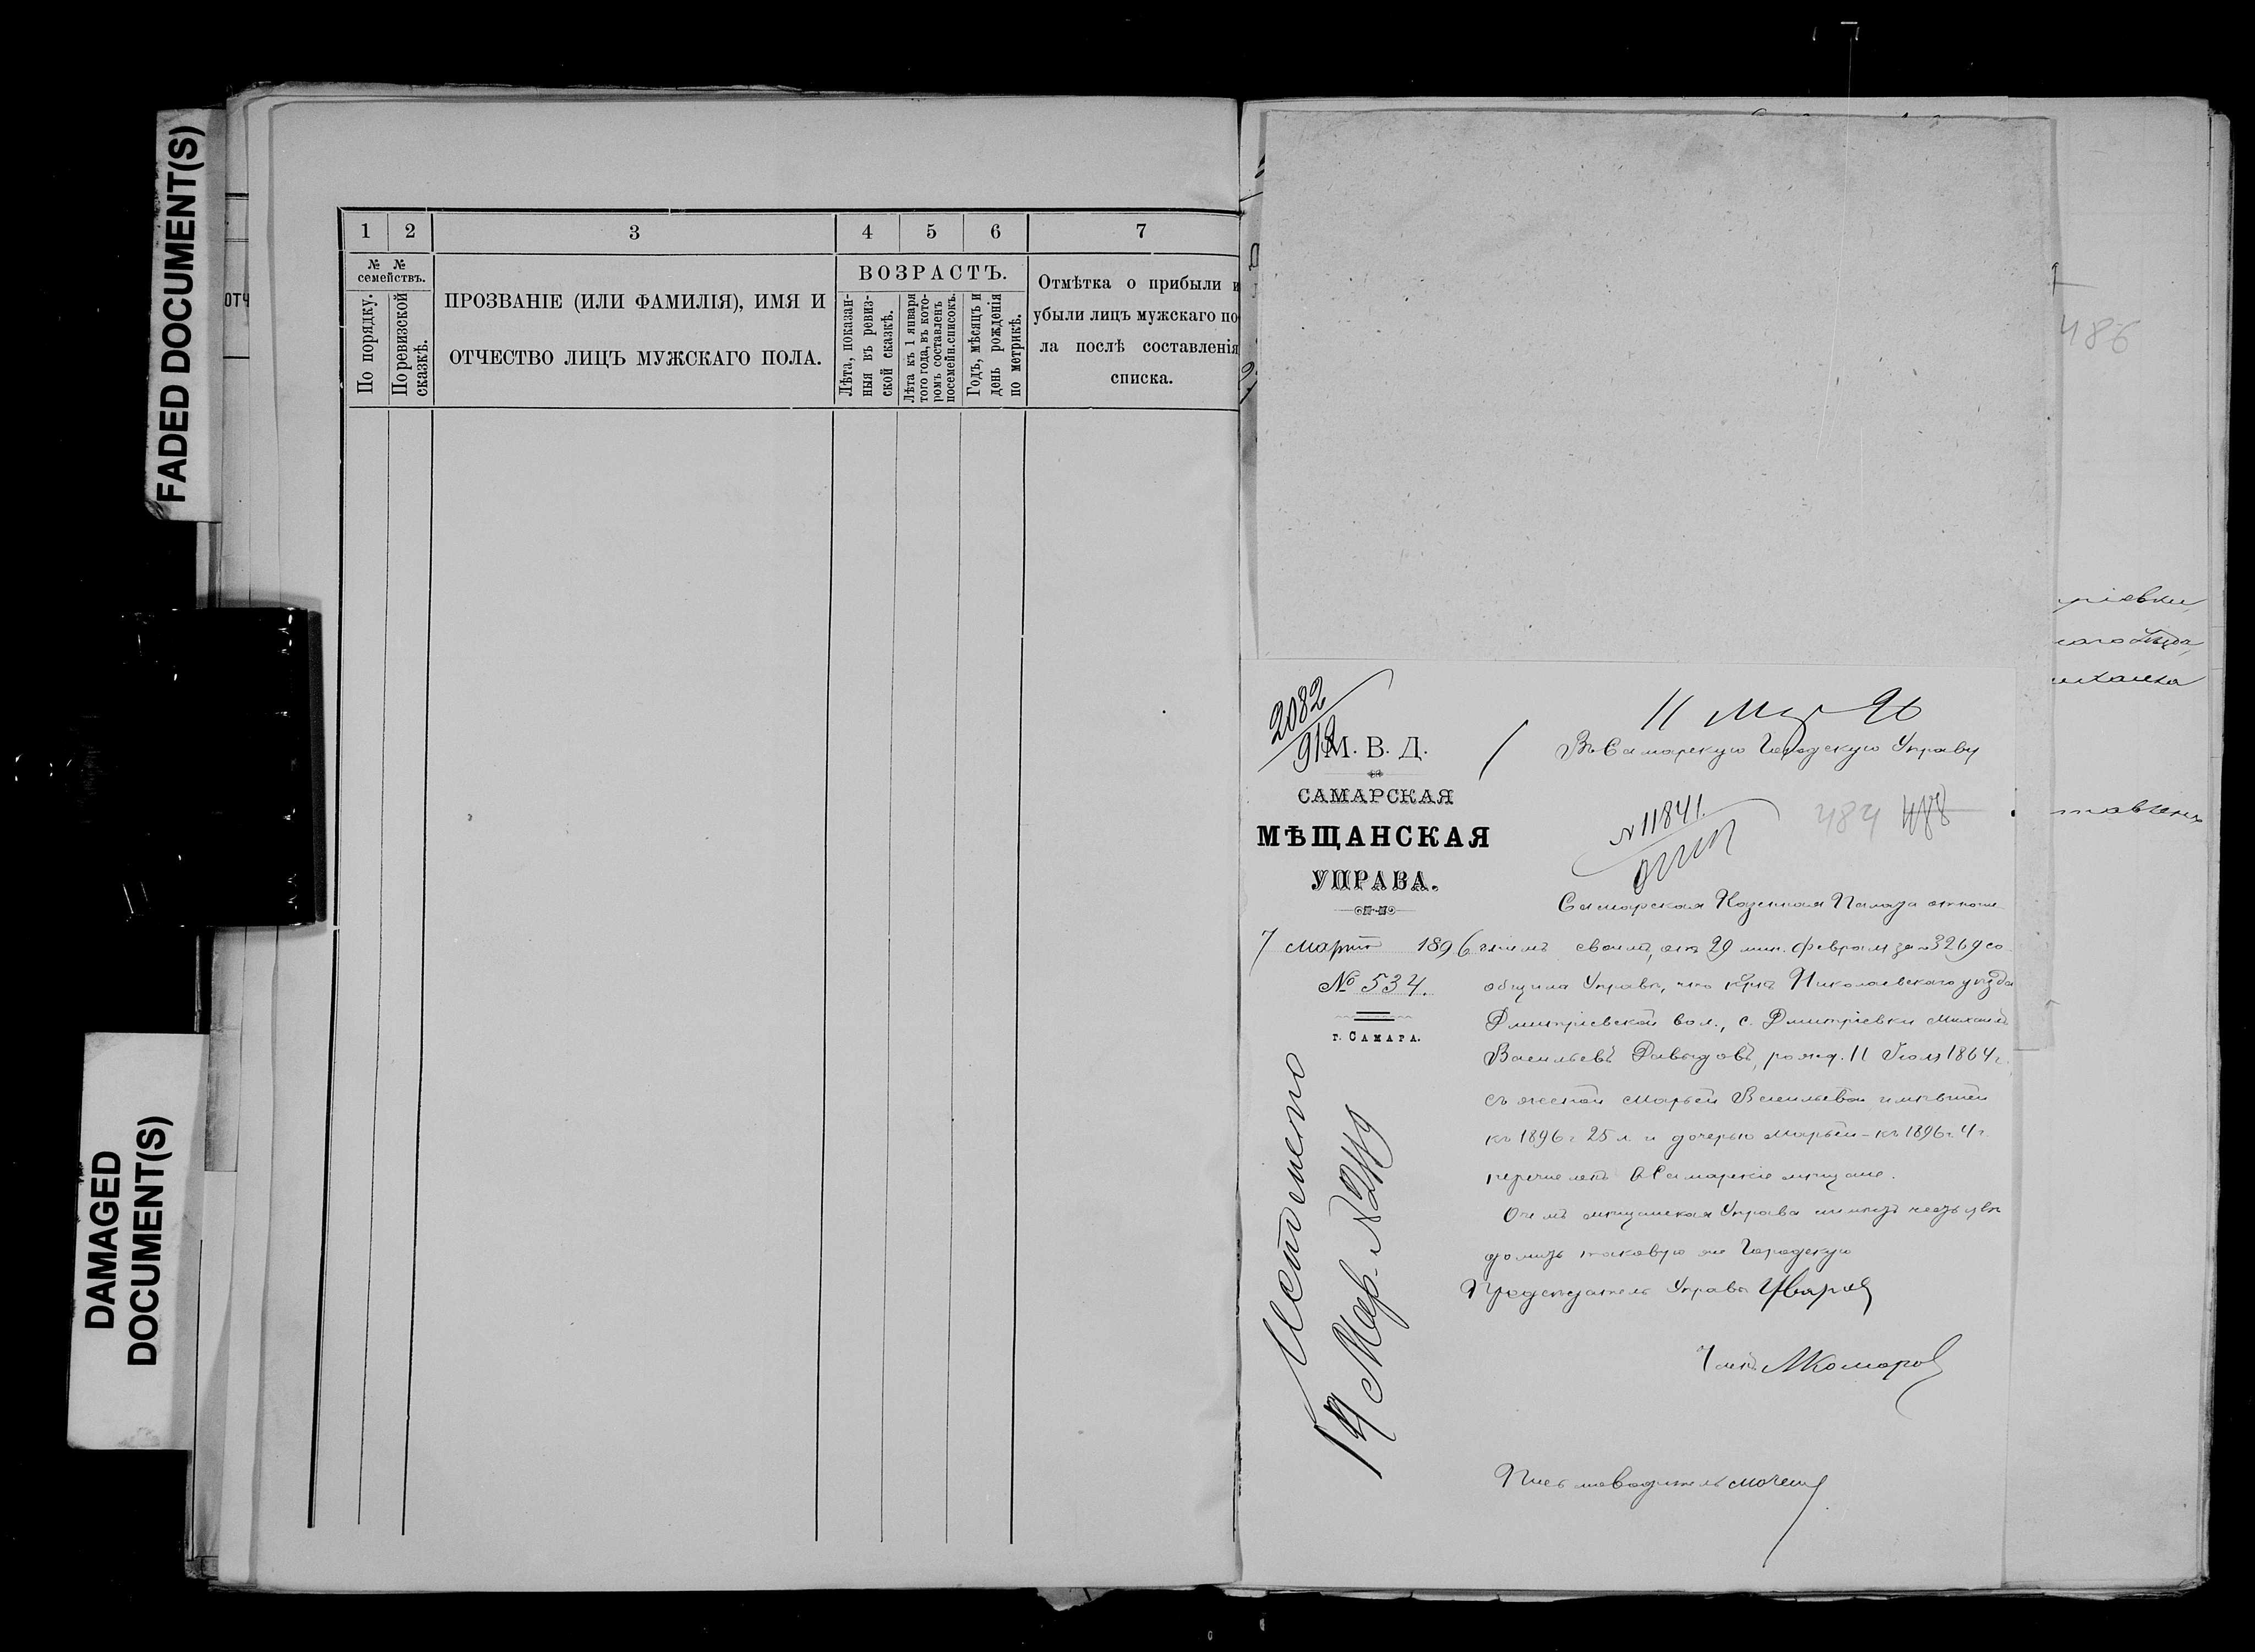 FADED DOCUMENT(S)
DAMAGED
DOCUMENT(S)
ОТЧ
1 2 3 4 5 6 7
№ № семействъ.
По порядку.
По ревизской сказкѣ.
ПРОЗВАНІЕ (ИЛИ ФАМИЛІЯ), ИМЯ И
ОТЧЕСТВО ЛИЦЪ МУЖСКАГО ПОЛА.
ВОЗРАСТЪ.
Лѣта, показан-
ныя въ ревиз-
ской сказкѣ.
Лѣта къ 1 января
того года, въ кото-
ромъ составленъ
посемейн. списокъ.
Годъ, мѣсяцъ и
день рожденія
по метрикѣ.
Отмѣтка о прибыли и
убыли лицъ мужскаго по
ла послѣ составленія
списка.
486
2082
912
М. В. Д.
САМАРСКАЯ
МѢЩАНСКАЯ
УПРАВА.
7 Марта 1896
№ 534.
г. САМАРА.
11 Мар 96
Въ Самарскую Городскую Управу
№ 11841.
484 488
Самарская Казенная Палата отноше
ніемъ своимъ, отъ 29 мин. февраля за № 3269 со
общила Управѣ, что кр-нъ Николаевскаго уѣзда
Дмитріевской вол., с. Дмитріевки Михаилъ
Васильевъ Давыдовъ, рожд. 11 Іюля 1864 г.
съ женой Марьей Васильевой имѣвшей
къ 1896 г 25 л. и дочерью Марьей - къ 1896 г. 4 г
перечисленъ въ Самарскіе мѣщане.
О чемъ мѣщанская Управа имѣетъ честь увѣ
домить таковую же Городскую
Предсѣдатель Управы
Членъ МКомаров
Письмоводитель
Исполнено
14 Мар. № 2119